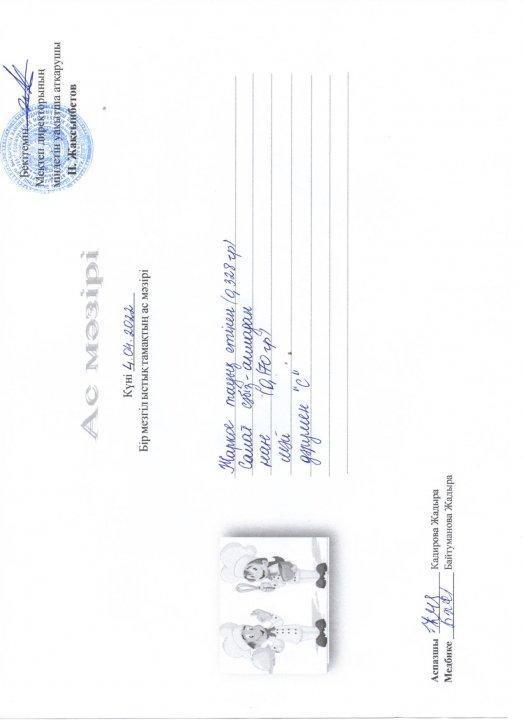 Бекітемін
Мектеп директорының
міндетін уақытша атқарушы
П. Жақсыпбетов
Ас мәзірі
Күні 4.04.2022
Бір мезгіл ыстық тамақтың ас мәзірі
Жаркое тауық етінен (0,328 гр)
Салат сәбіз-алмадан
нан (0,170 гр)
шәй
дәрумен "С"
Аспазшы Кадирова Жадыра
Медбике Байтуманова Жадыра